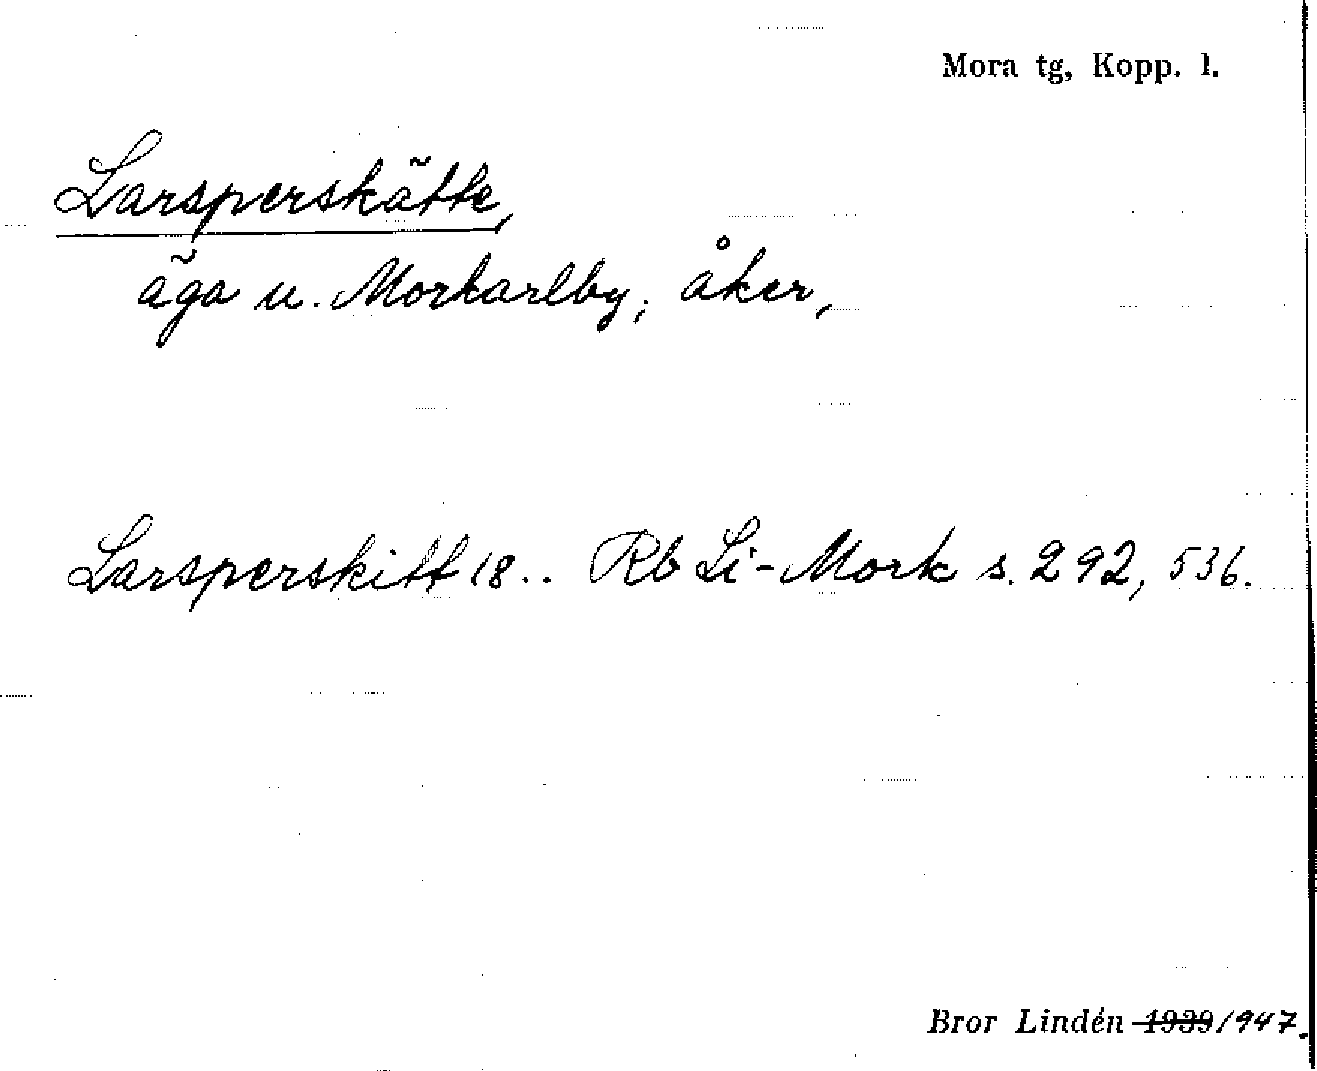 Mora tg, Kopp. l.
Larsperskätte,
äga u. Morkarlby; åker,
Larsperskitt 18.. Rb Li-Mork s. 292, 536.
Bror Lindén 1939 1947.